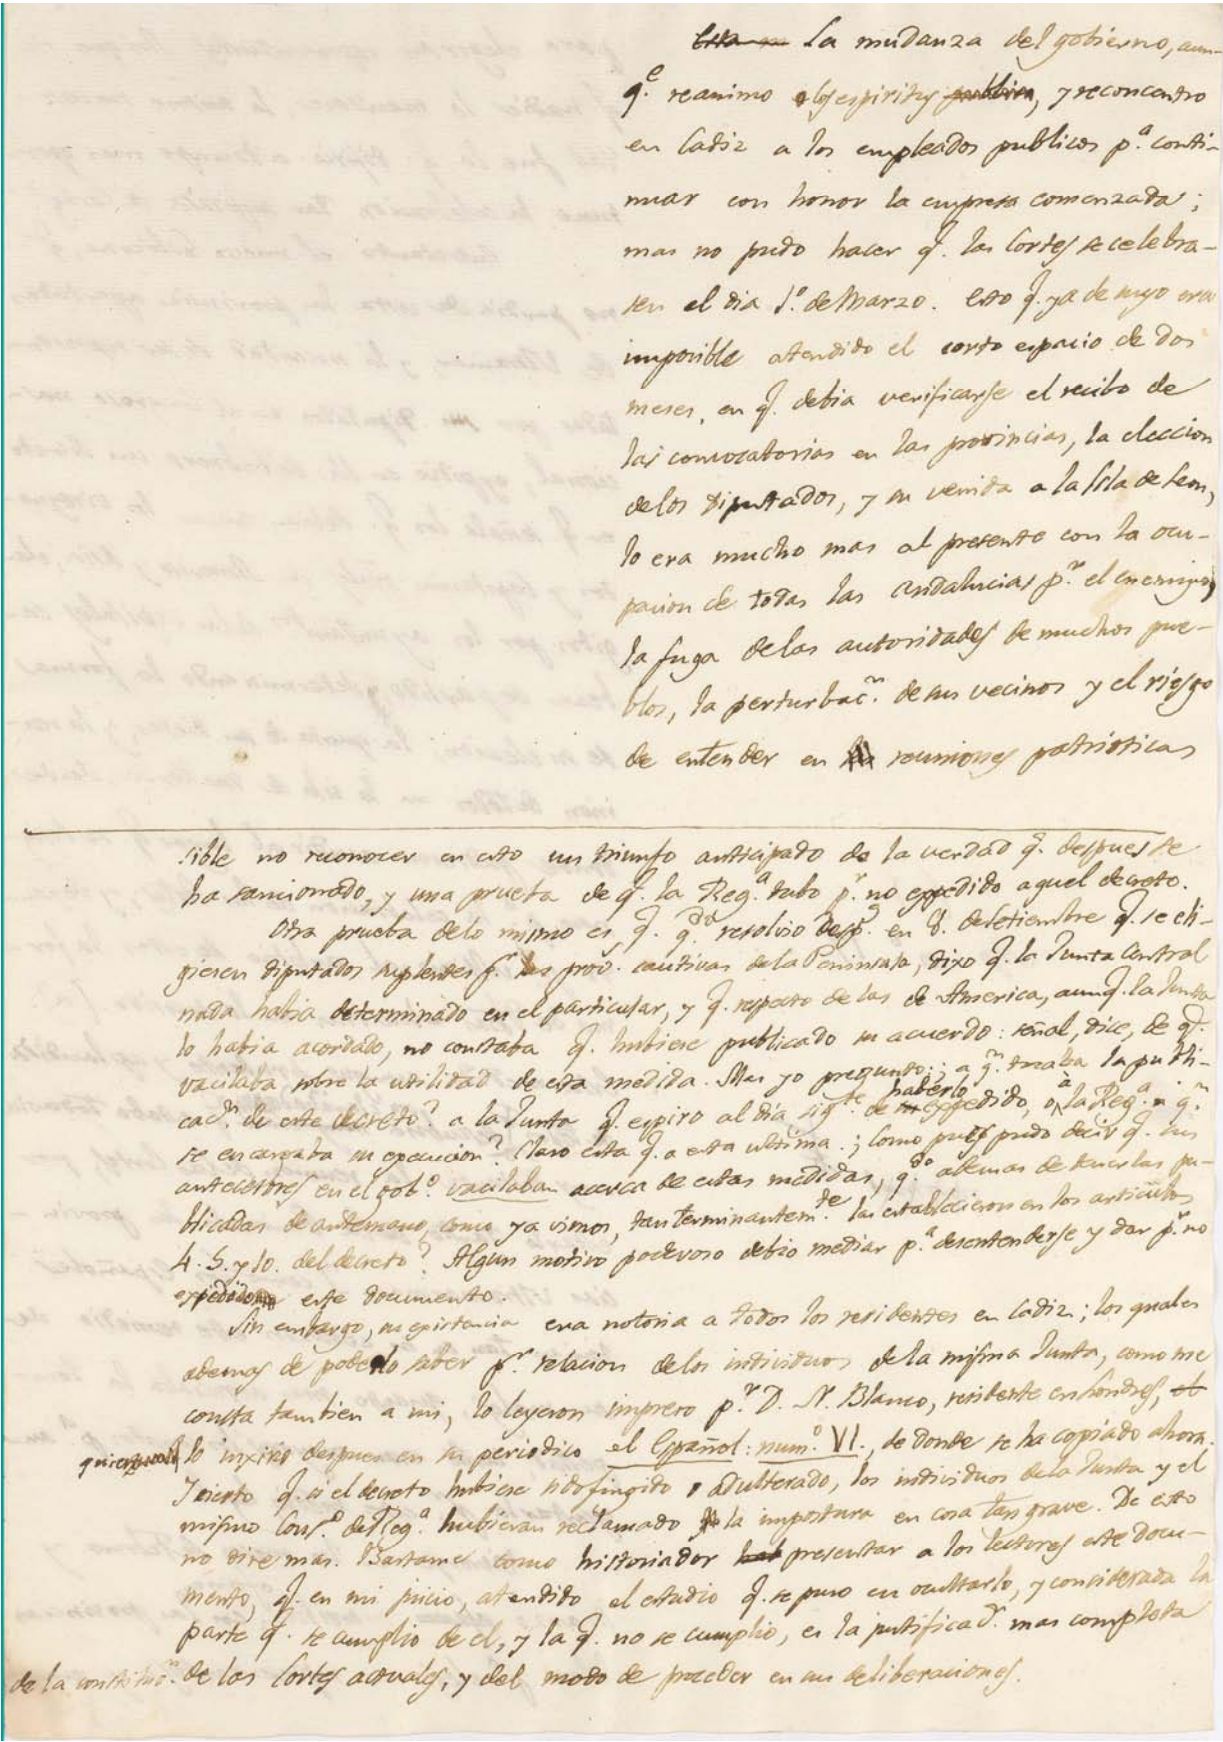 La mudanza del gobierno, aun-
q.e reanimo los espiritus, y reconcentro
en Cadiz a los empleados publicos p.a conti-
nuar con honor la empresa comenzada;
mas no pudo hacer q. las Cortes se celebra-
sen el dia 1.o de Marzo. Esto q. ya de suyo era
imposible atendido el corto espacio de dos
meses, en q. debia verificarse el recibo de
las convocatorias en las provincias, la eleccion
de los diputados, y su venida a la Isla de Leon,
lo era mucho mas al presente con la ocu-
pacion de todas las Andalucias p.r el enemigo,
la fuga de las autoridades de muchos pue-
blos, la perturbac.n de sus vecinos y el riesgo
de entender en reuniones patrioticas
sible no reconocer en esto un triunfo anticipado de la verdad q. despues se
ha sancionado, y una prueba de q. la Reg.a tubo p.r no expedido aquel decreto.
Otra prueba de lo mismo es, q. q.do resolvio desp.s en 8. de Setiembre q. se eli-
giesen diputados suplentes p.r las prov. cautivas de la Peninsula, dixo q. la Junta Central
nada habia determinado en el particular, y q. respecto de las de America, aunq. la Junta
lo habia acordado, no constaba q. hubiese publicado su acuerdo: señal, dice, de q.
vacilaba sobre la utilidad de esta medida. Mas yo pregunto: ¿a q.n tocaba la publi-
cac.n de este decreto? a la Junta q. espiro al dia sig.te de haberlo expedido, o a la Reg.a a q.n
se encargaba su execucion? Claro esta q. a esta ultima. ¿Como pues pudo decir q. sus
antecesores en el gob.o vacilaban acerca de estas medidas, q.do ademas de tenerlas pu-
blicadas de antemano, como ya vimos, tan terminantem.te las establecieron en los articulos
4. 5. y 10. del decreto? Algun motivo poderoso debio mediar p.a desentenderse y dar p.r no
expedido este documento.
Sin embargo, su existencia era notoria a todos los residentes en Cadiz; los quales
ademas de poderlo saber p.r relacion de los individuos de la misma Junta, como me
consta tambien a mi, lo leyeron impreso p.r D. N. Blanco, residente en Londres, el
lo inxirio despues en su periodico el Español: num.o VI., de donde se ha copiado ahora.
Y cierto q. si el decreto hubiese sido fingido o adulterado, los individuos de la Junta y el
mismo Cons.o de Reg.a hubieran reclamado la impostura en cosa tan grave. De esto
no dire mas. Bastame como historiador presentar a los lectores este docu-
mento, q. en mi juicio, atendido el estudio q. se puso en ocultarlo, y considerada la
parte q. se cumplio de el, y la q. no se cumplio, es la justificac.n mas completa
de la constituc.n de las Cortes actuales, y del modo de proceder en sus deliberaciones.